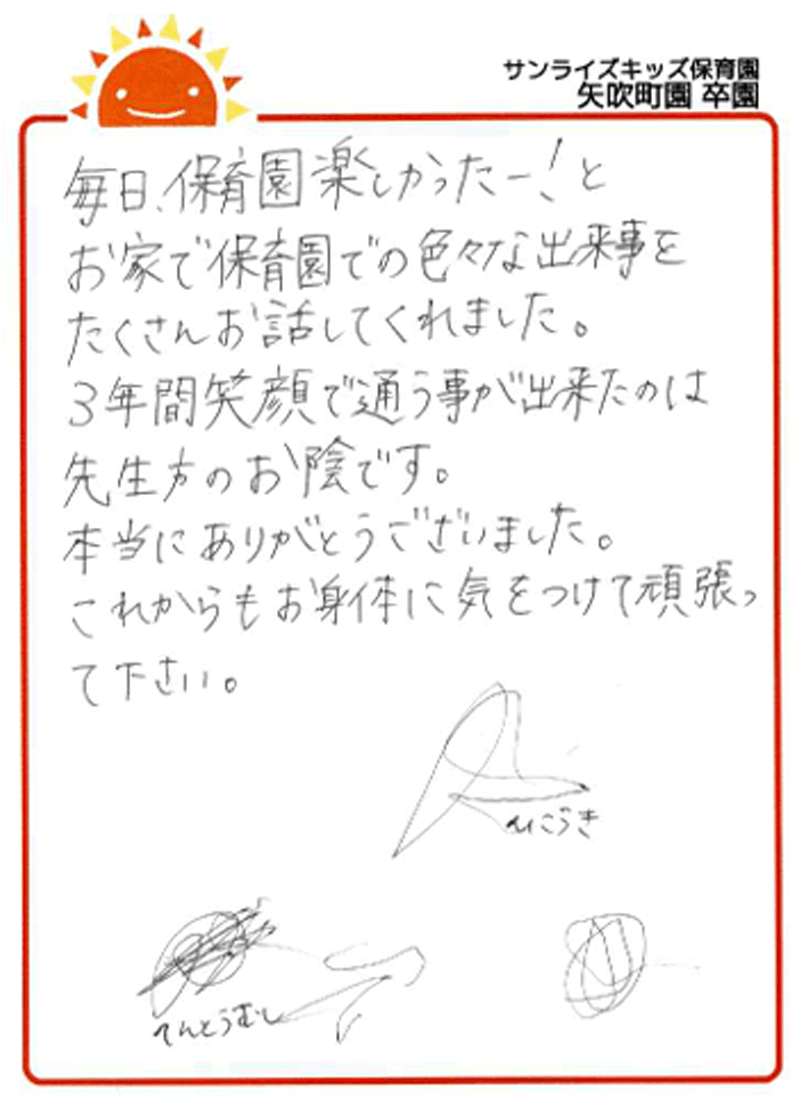 サンライズキッズ保育園
矢吹町園 卒園
毎日、保育園楽しかったー!と
お家で保育園での色々な出来事を
たくさんお話してくれました。
3年間笑顔で通う事が出来たのは
先生方のお陰です。
本当にありがとうございました。
これからもお身体に気をつけて頑張っ
て下さい。
ひこうき
てんとうむし